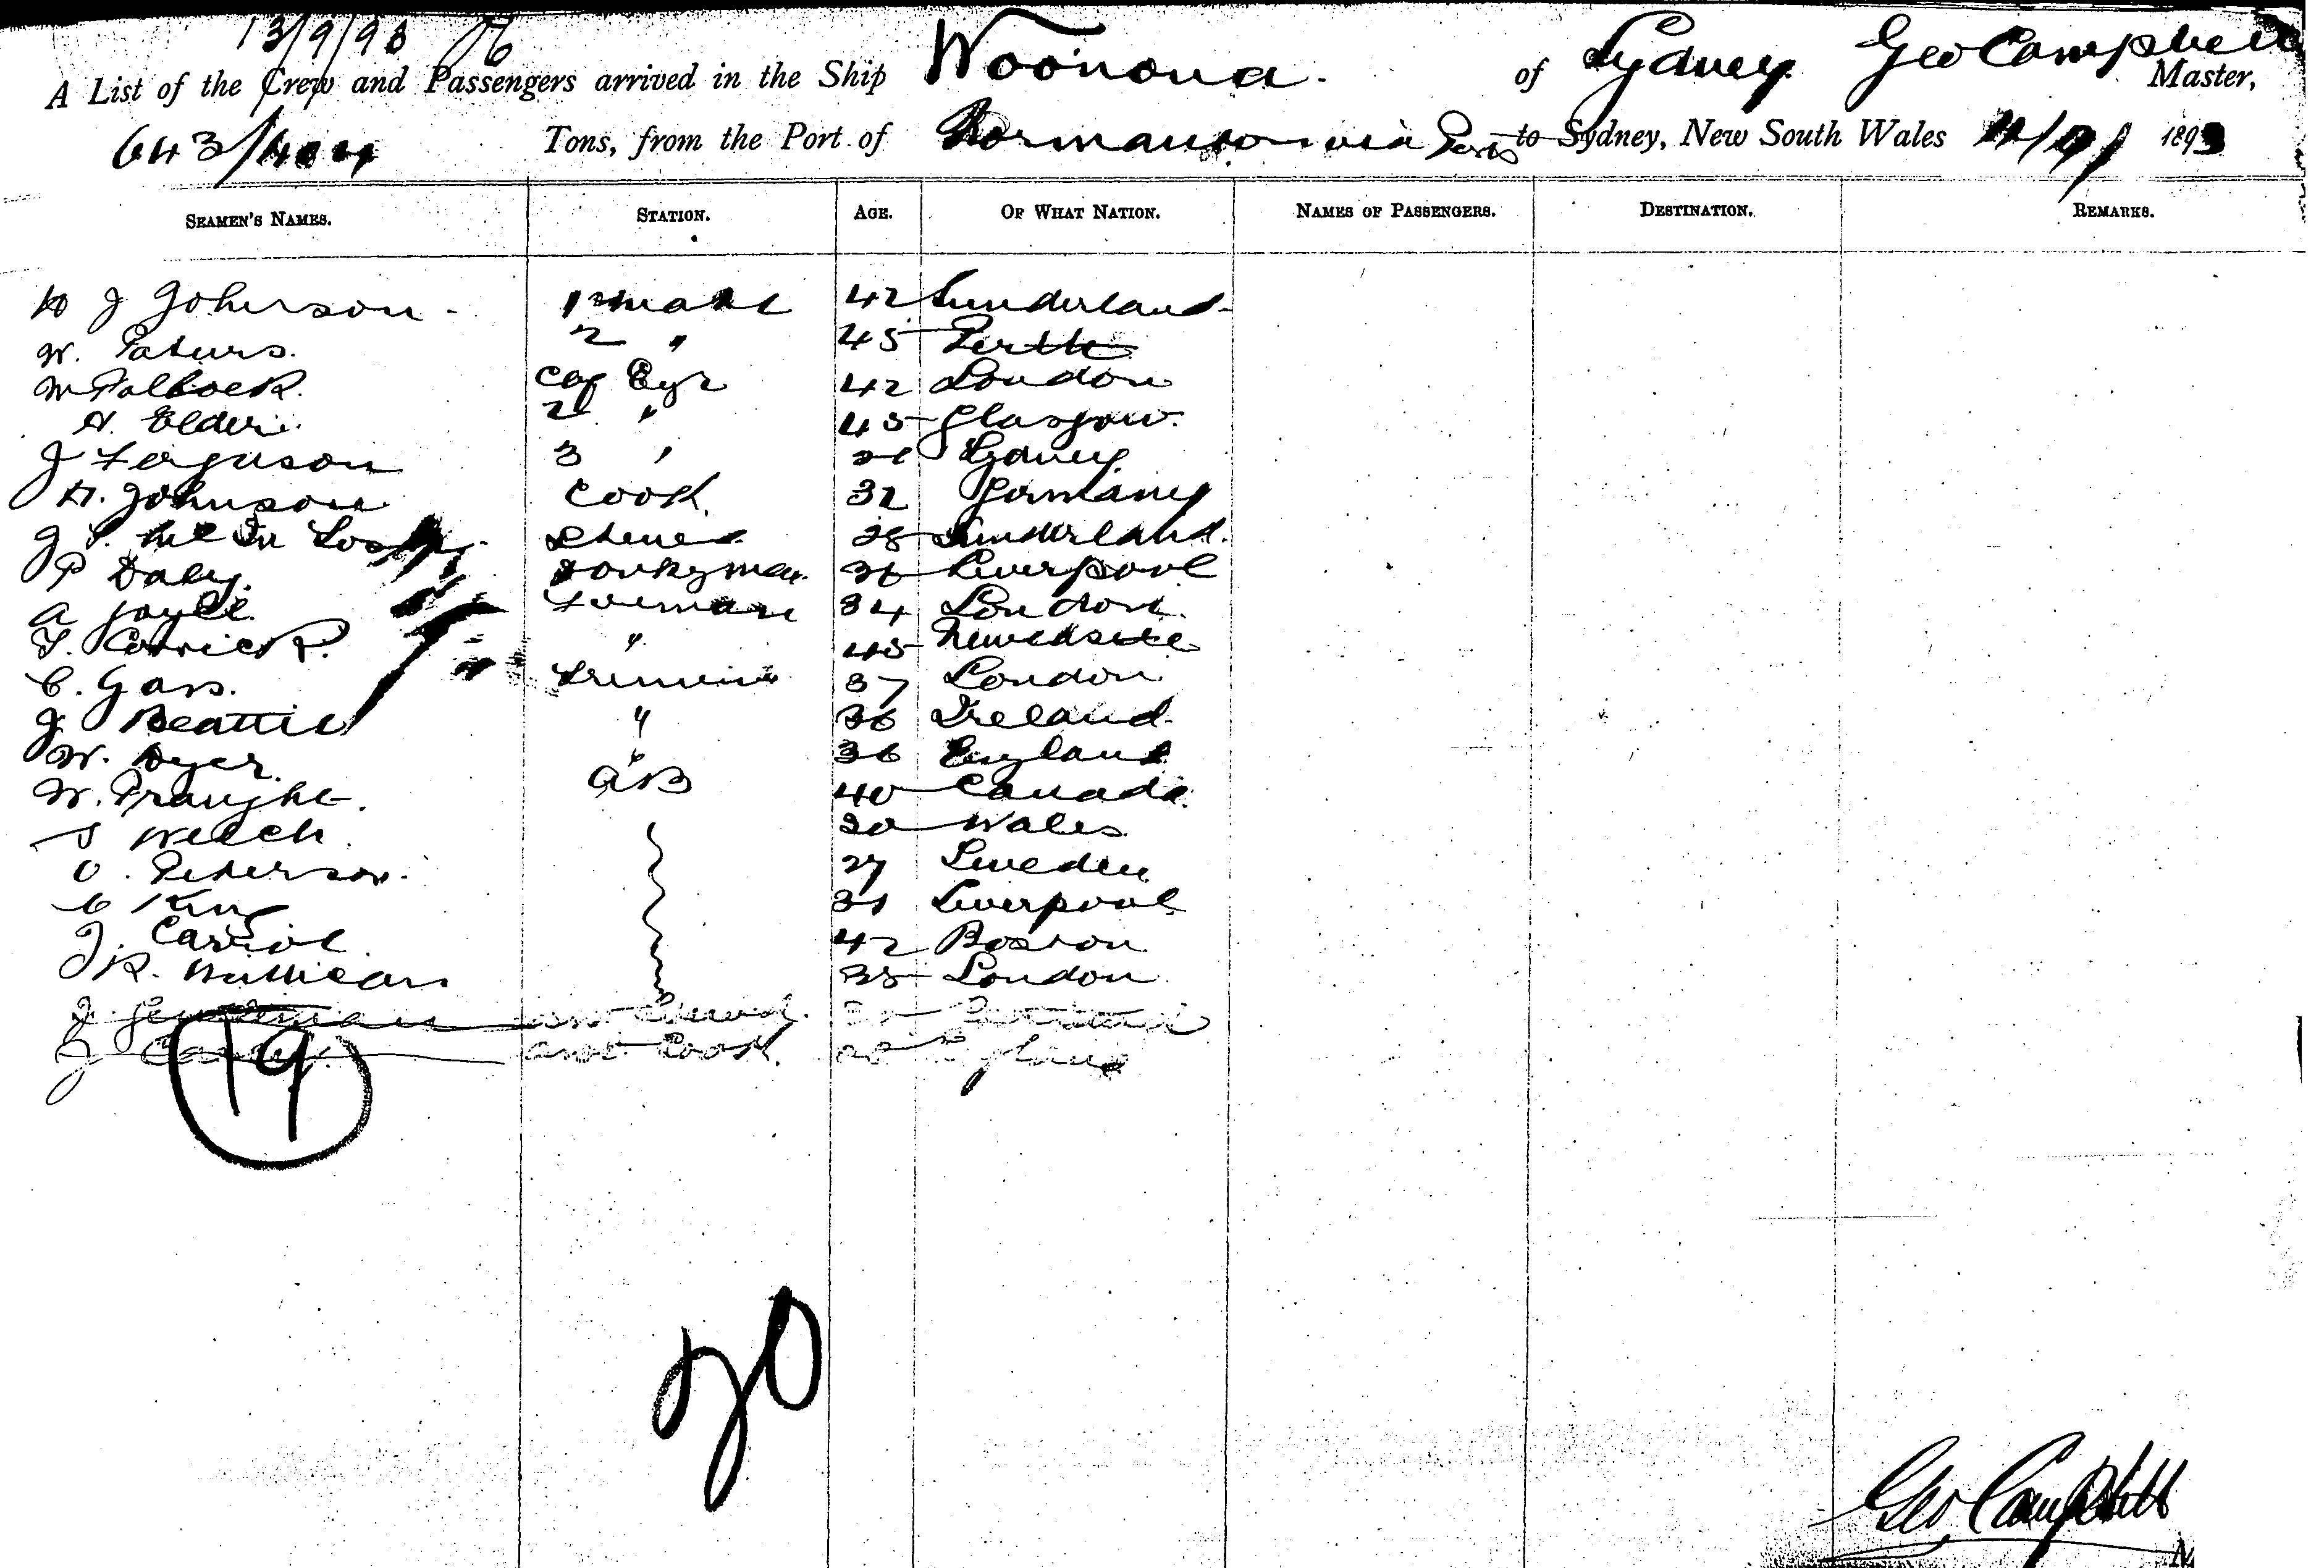 13/9/93
A List of the Crew and Passengers arrived in the Ship Woonona. of Sydney Geo Campbell Master,
643/404 Tons, from the Port of Normanton via Ports to Sydney, New South Wales 1893
SEAMEN'S NAMES. STATION. AGE. OF WHAT NATION. NAMES OF PASSENGERS. DESTINATION. REMARKS.
J Johnson 1st mate 42 Sunderland
W. 2 " 45 Perth
W 42 London
A. Elder 2 " 45 Glasgow
J Ferguson 3 " Sydney
H. Johnson Cook 32 Germany
J Stewd 28 Sunderland
P Daly Donkyman Liverpool
A Joyce Foreman 34 London
T. Corrick " 45 Newcastle
C. Gass Trimmer 37 London
J Beattie " 36 Ireland
W. Dyer " 36 England
W. AB 40 Canada
S Welch Wales
O. Peterson 27 Sweden
C King 31 Liverpool
J. Carrol 42 Boston
R. 35 London
J Gentleman
J asst Cook England
19
20
Geo Campbell